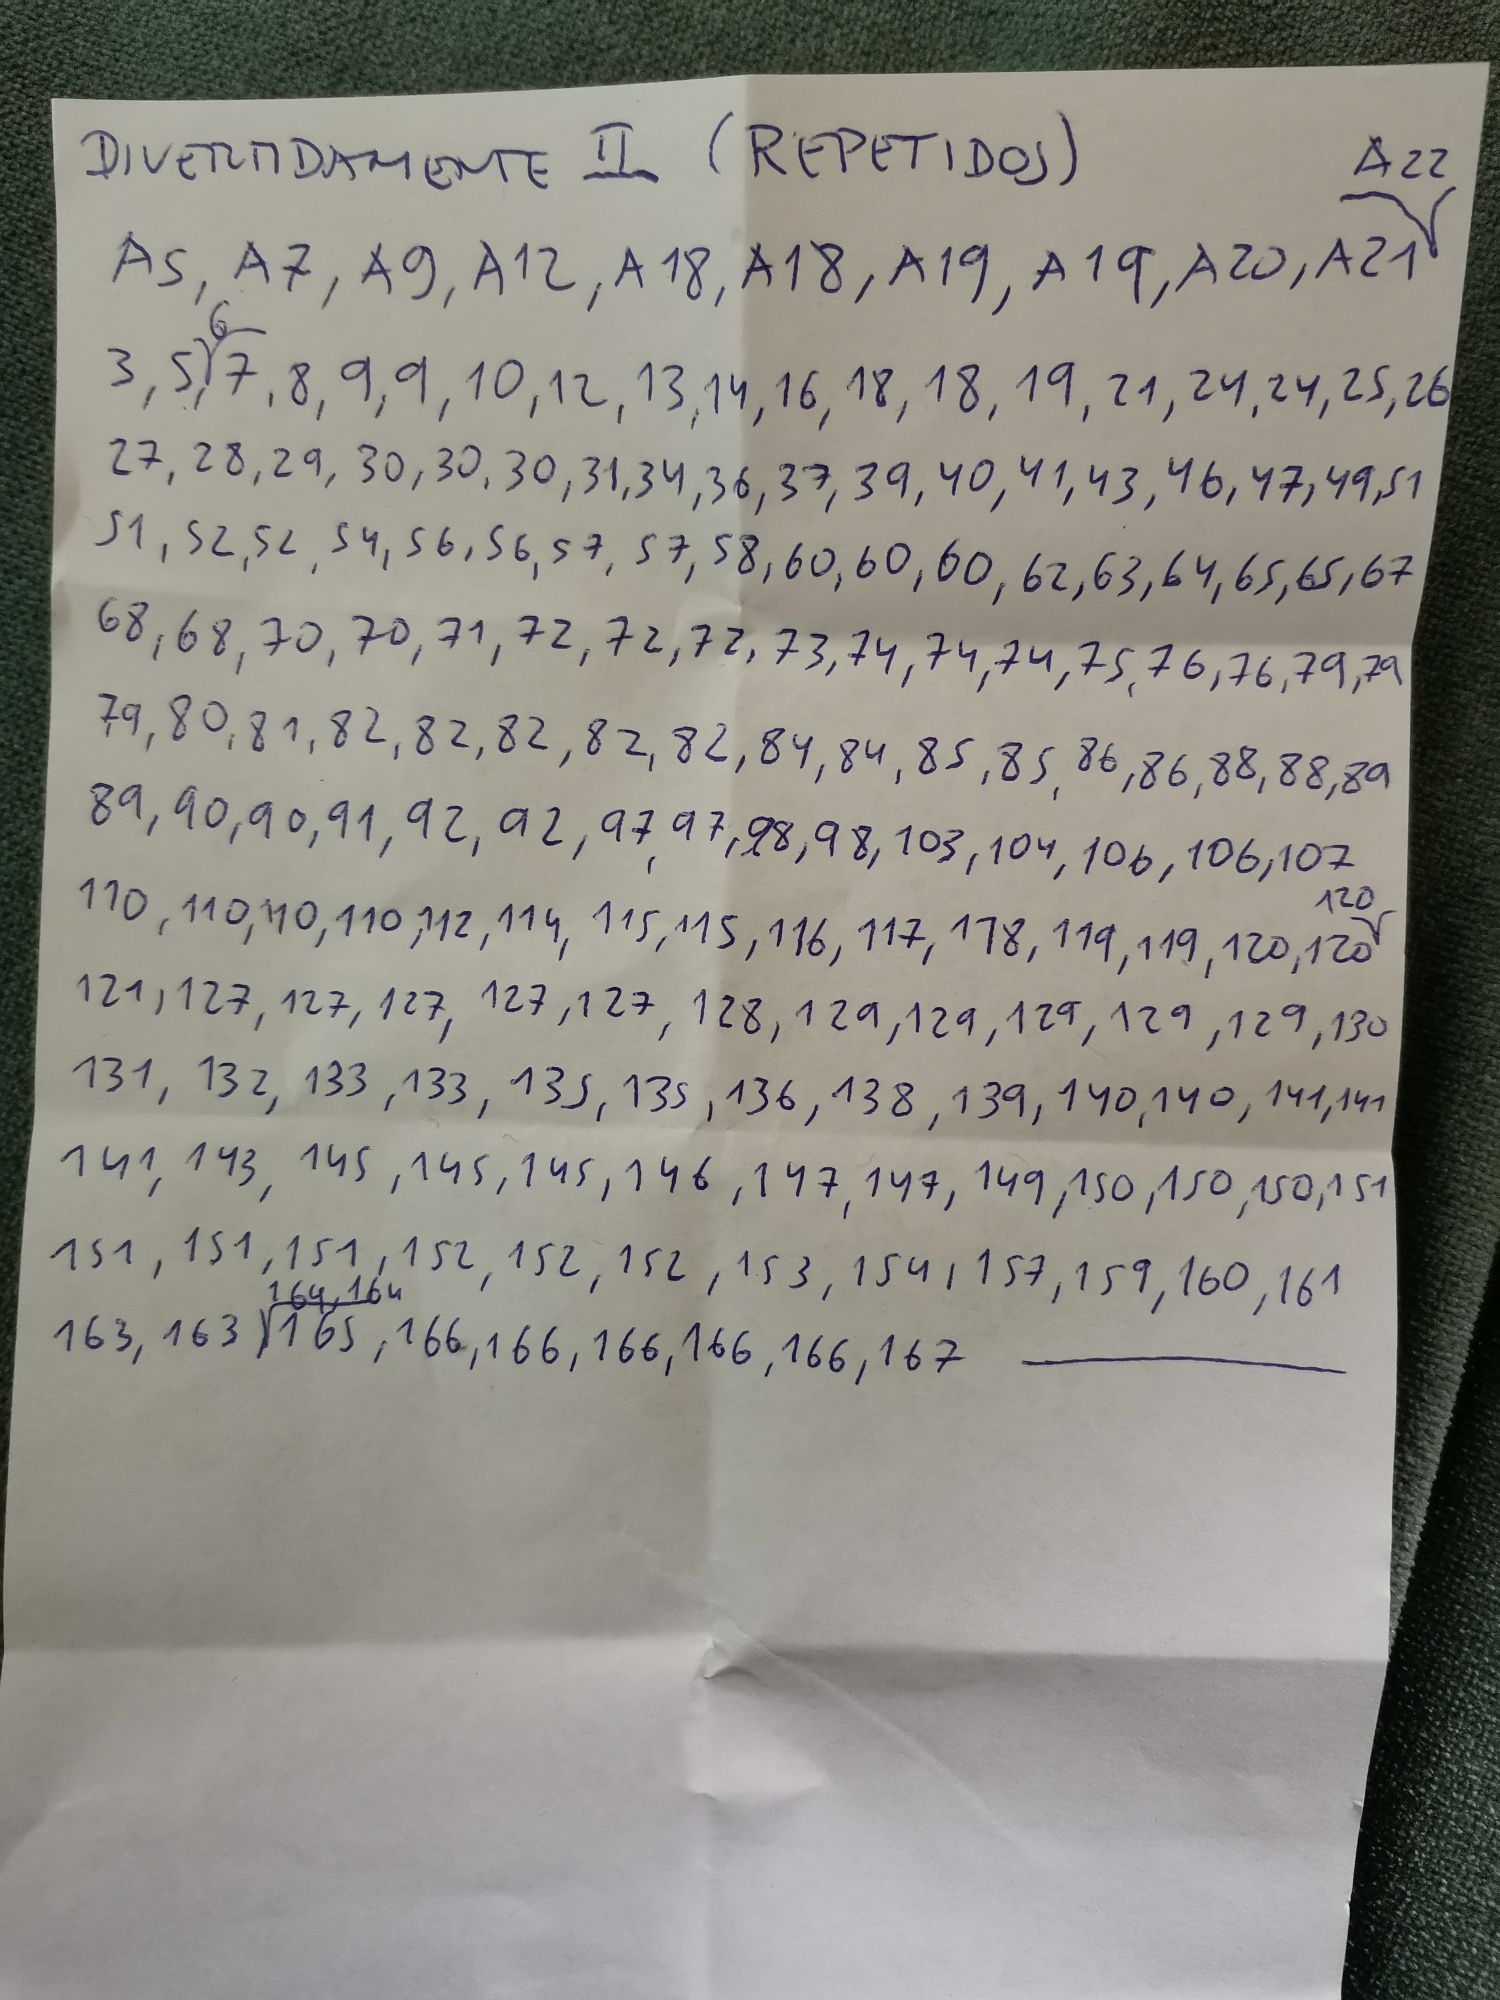 DIVERTIDAMENTE II (REPETIDOS)
A22
A5, A7, A9, A12, A18, A18, A19, A19, A20, A21
6
3, 5, 7, 8, 9, 9, 10, 12, 13, 14, 16, 18, 18, 19, 21, 24, 24, 25, 26
27, 28, 29, 30, 30, 30, 31, 34, 36, 37, 39, 40, 41, 43, 46, 47, 49, 51
51, 52, 52, 54, 56, 56, 57, 57, 58, 60, 60, 60, 62, 63, 64, 65, 65, 67
68, 68, 70, 70, 71, 72, 72, 72, 73, 74, 74, 74, 75, 76, 76, 79, 79
79, 80, 81, 82, 82, 82, 82, 82, 84, 84, 85, 85, 86, 86, 88, 88, 89
89, 90, 90, 91, 92, 92, 97, 97, 98, 98, 103, 104, 106, 106, 107
120
110, 110, 110, 110, 112, 114, 115, 115, 116, 117, 118, 119, 119, 120, 120
121, 127, 127, 127, 127, 127, 128, 129, 129, 129, 129, 129, 130
131, 132, 133, 133, 135, 135, 136, 138, 139, 140, 140, 141, 141
141, 143, 145, 145, 145, 146, 147, 147, 149, 150, 150, 150, 151
151, 151, 151, 152, 152, 152, 153, 154, 157, 159, 160, 161
164, 164
163, 163, 165, 166, 166, 166, 166, 166, 167